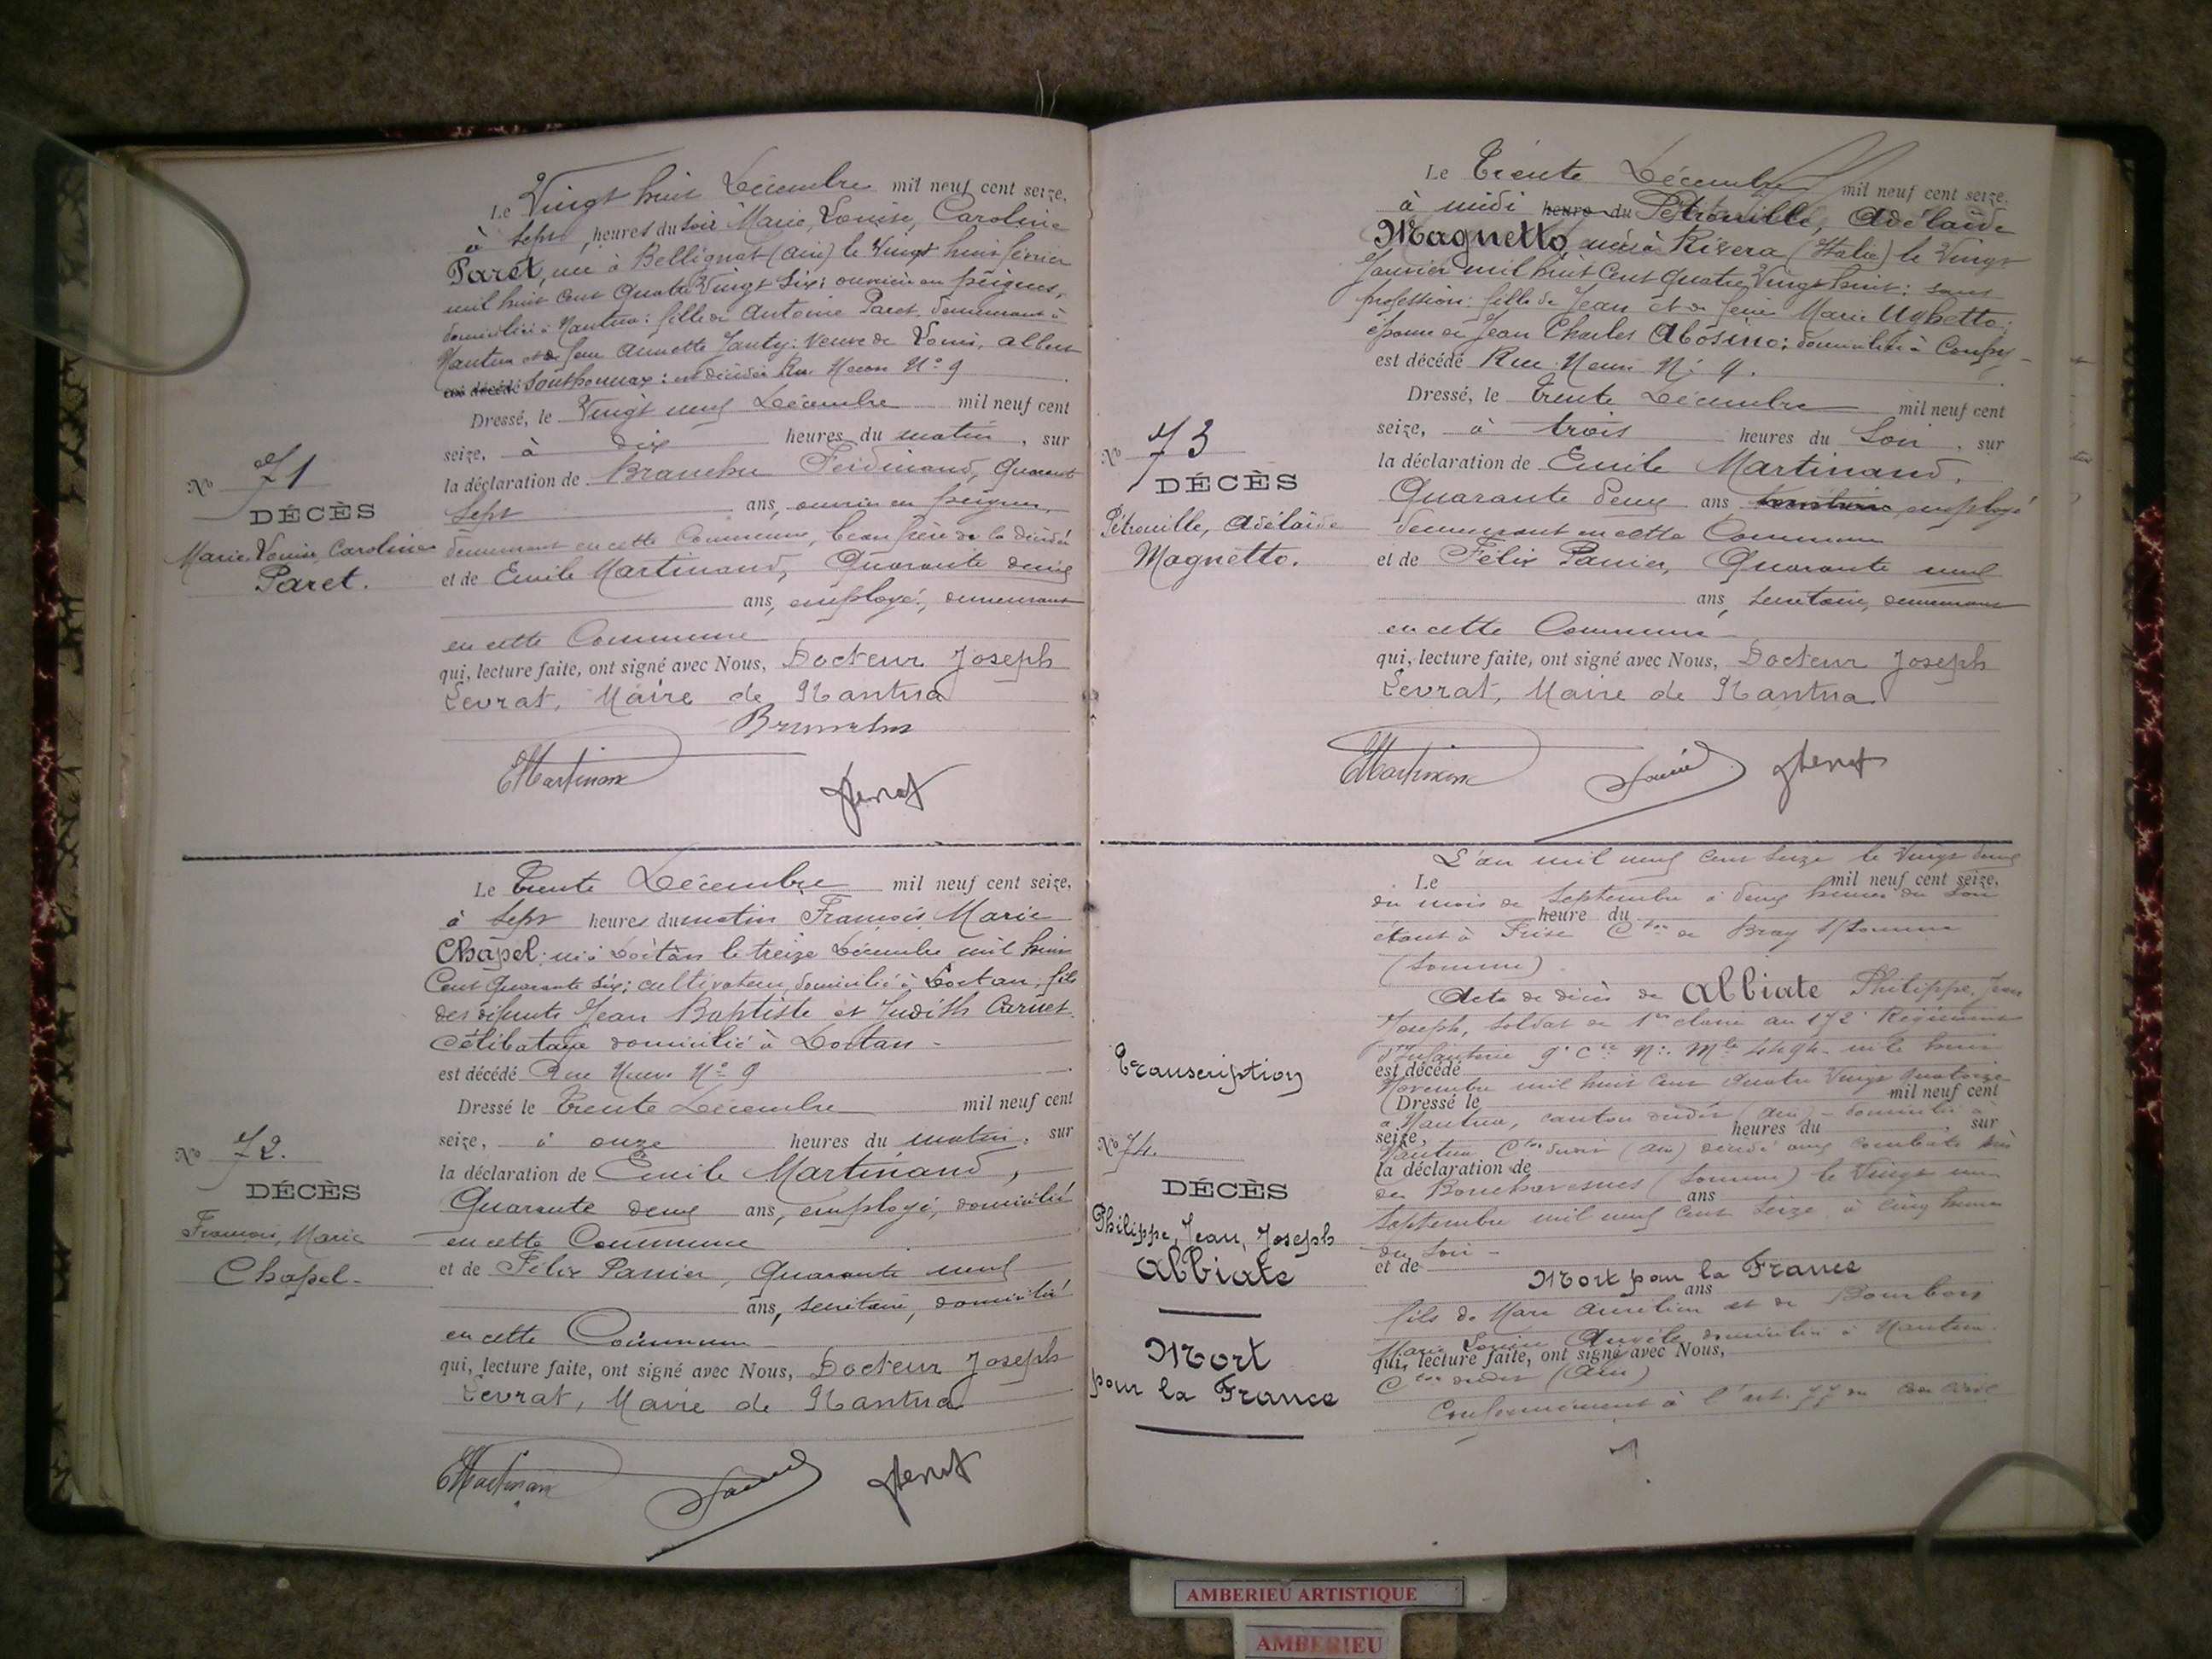 Le Vingt huit Décembre mil neuf cent seize,
à sept heures du soir Marie, Louise, Caroline
Paret, née à Bellignat (Ain) le Vingt huit février
mil huit cent Quatre Vingt Six; ouvrière en peignes,
domiciliée à Nantua: fille de Antoine Paret, demeurant à
Nantua et de feue Annette Janty: veuve de Louis, Albert
est décédé Sonthonnax: est décédée Rue Neuve N° 9
Dressé, le Vingt neuf Décembre mil neuf cent
seize, à dix heures du matin, sur
la déclaration de Branchu Ferdinand, Quarante
sept ans, ouvrier en peignes,
demeurant en cette Commune, beau frère de la décédée
et de Emile Martinand, Quarante deux
ans, employé, demeurant
en cette Commune
qui, lecture faite, ont signé avec Nous, Docteur Joseph
Levrat, Maire de Nantua
No 71
DÉCÈS
Marie, Louise, Caroline
Paret.
Le Trente Décembre mil neuf cent seize,
à sept heures du matin François, Marie
Chapel: né à Dortan le treize Décembre mil huit
Cent Quarante Six; cultivateur, domicilié à Dortan, fils
des défunts Jean Baptiste et Judith Carnet.
Célibataire domicilié à Dortan -
est décédé Rue Neuve N° 9
Dressé le Trente Décembre mil neuf cent
seize, à onze heures du matin, sur
la déclaration de Emile Martinand,
Quarante deux ans, employé, domicilié
en cette Commune
et de Félix Panier, Quarante neuf
ans, secrétaire, domicilié
en cette Commune
qui, lecture faite, ont signé avec Nous, Docteur Joseph
Levrat, Maire de Nantua
No 72.
DÉCÈS
François, Marie
Chapel.
Le Trente Décembre mil neuf cent seize,
à midi heure du Pétronille, Adélaïde
Magnetto, née à Rivera (Italie) le Vingt
Janvier mil huit Cent Quatre Vingt huit: sans
profession: fille de Jean et de feue Marie Ughetto:
épouse de Jean Charles Abosino; domiciliée à Coupy -
est décédé Rue Neuve N° 9.
Dressé, le trente Décembre mil neuf cent
seize, à trois heures du Soir, sur
la déclaration de Emile Martinand,
Quarante deux ans employé
demeurant en cette Commune
et de Félix Panier, Quarante neuf
ans, secrétaire, demeurant
en cette Commune
qui, lecture faite, ont signé avec Nous, Docteur Joseph
Levrat, Maire de Nantua
No 73
DÉCÈS
Pétronille, Adélaïde
Magnetto.
L'an mil neuf cent seize le Vingt deux
Le mil neuf cent seize,
du mois de Septembre à deux heures du Soir
heure du
étant à Frise Cton de Bray s/Somme
(Somme)
Acte de décès de Albiate Philippe, Jean
Joseph, Soldat de 1ère classe au 172e Régiment
d'Infanterie 9e Cie N° Mle 4494 - né le
est décédé
Novembre mil huit cent Quatre Vingt Quatorze
Dressé le mil neuf cent
à Nantua, canton dudit (Ain) - domicilié à
seize, heures du sur
Nantua Cton dudit (Ain) décédé aux combats près
la déclaration de
de Bouchavesnes (Somme) le Vingt un
ans
Septembre mil neuf cent Seize à cinq heures
du Soir -
et de
Mort pour la France
ans
fils de Marc Aurélien et de Bourbon
Marie Louise Angèle, domiciliés à Nantua
qui, lecture faite, ont signé avec Nous,
Cton dudit (Ain)
Conformément à l'art. 77 du Code Civil
Transcription
No 74.
DÉCÈS
Philippe, Jean, Joseph
Albiate
Mort
pour la France
AMBERIEU ARTISTIQUE
AMBERIEU